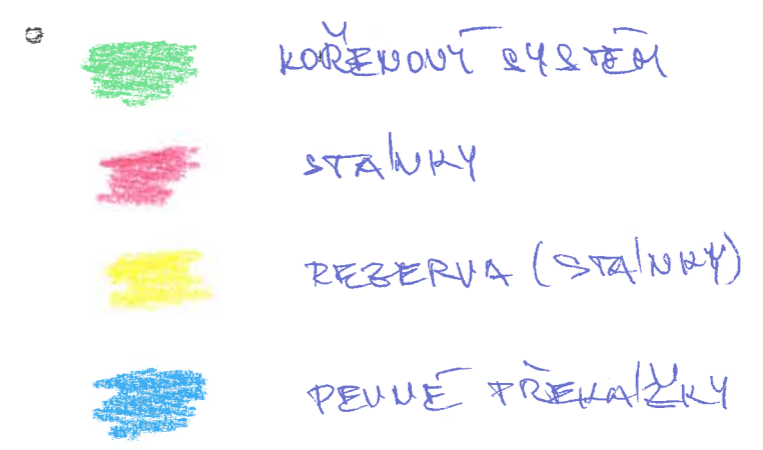 KOŘENOVÝ SYSTÉM
STÁNKY
REZERVA (STÁNKY)
PEVNÉ PŘEKÁŽKY